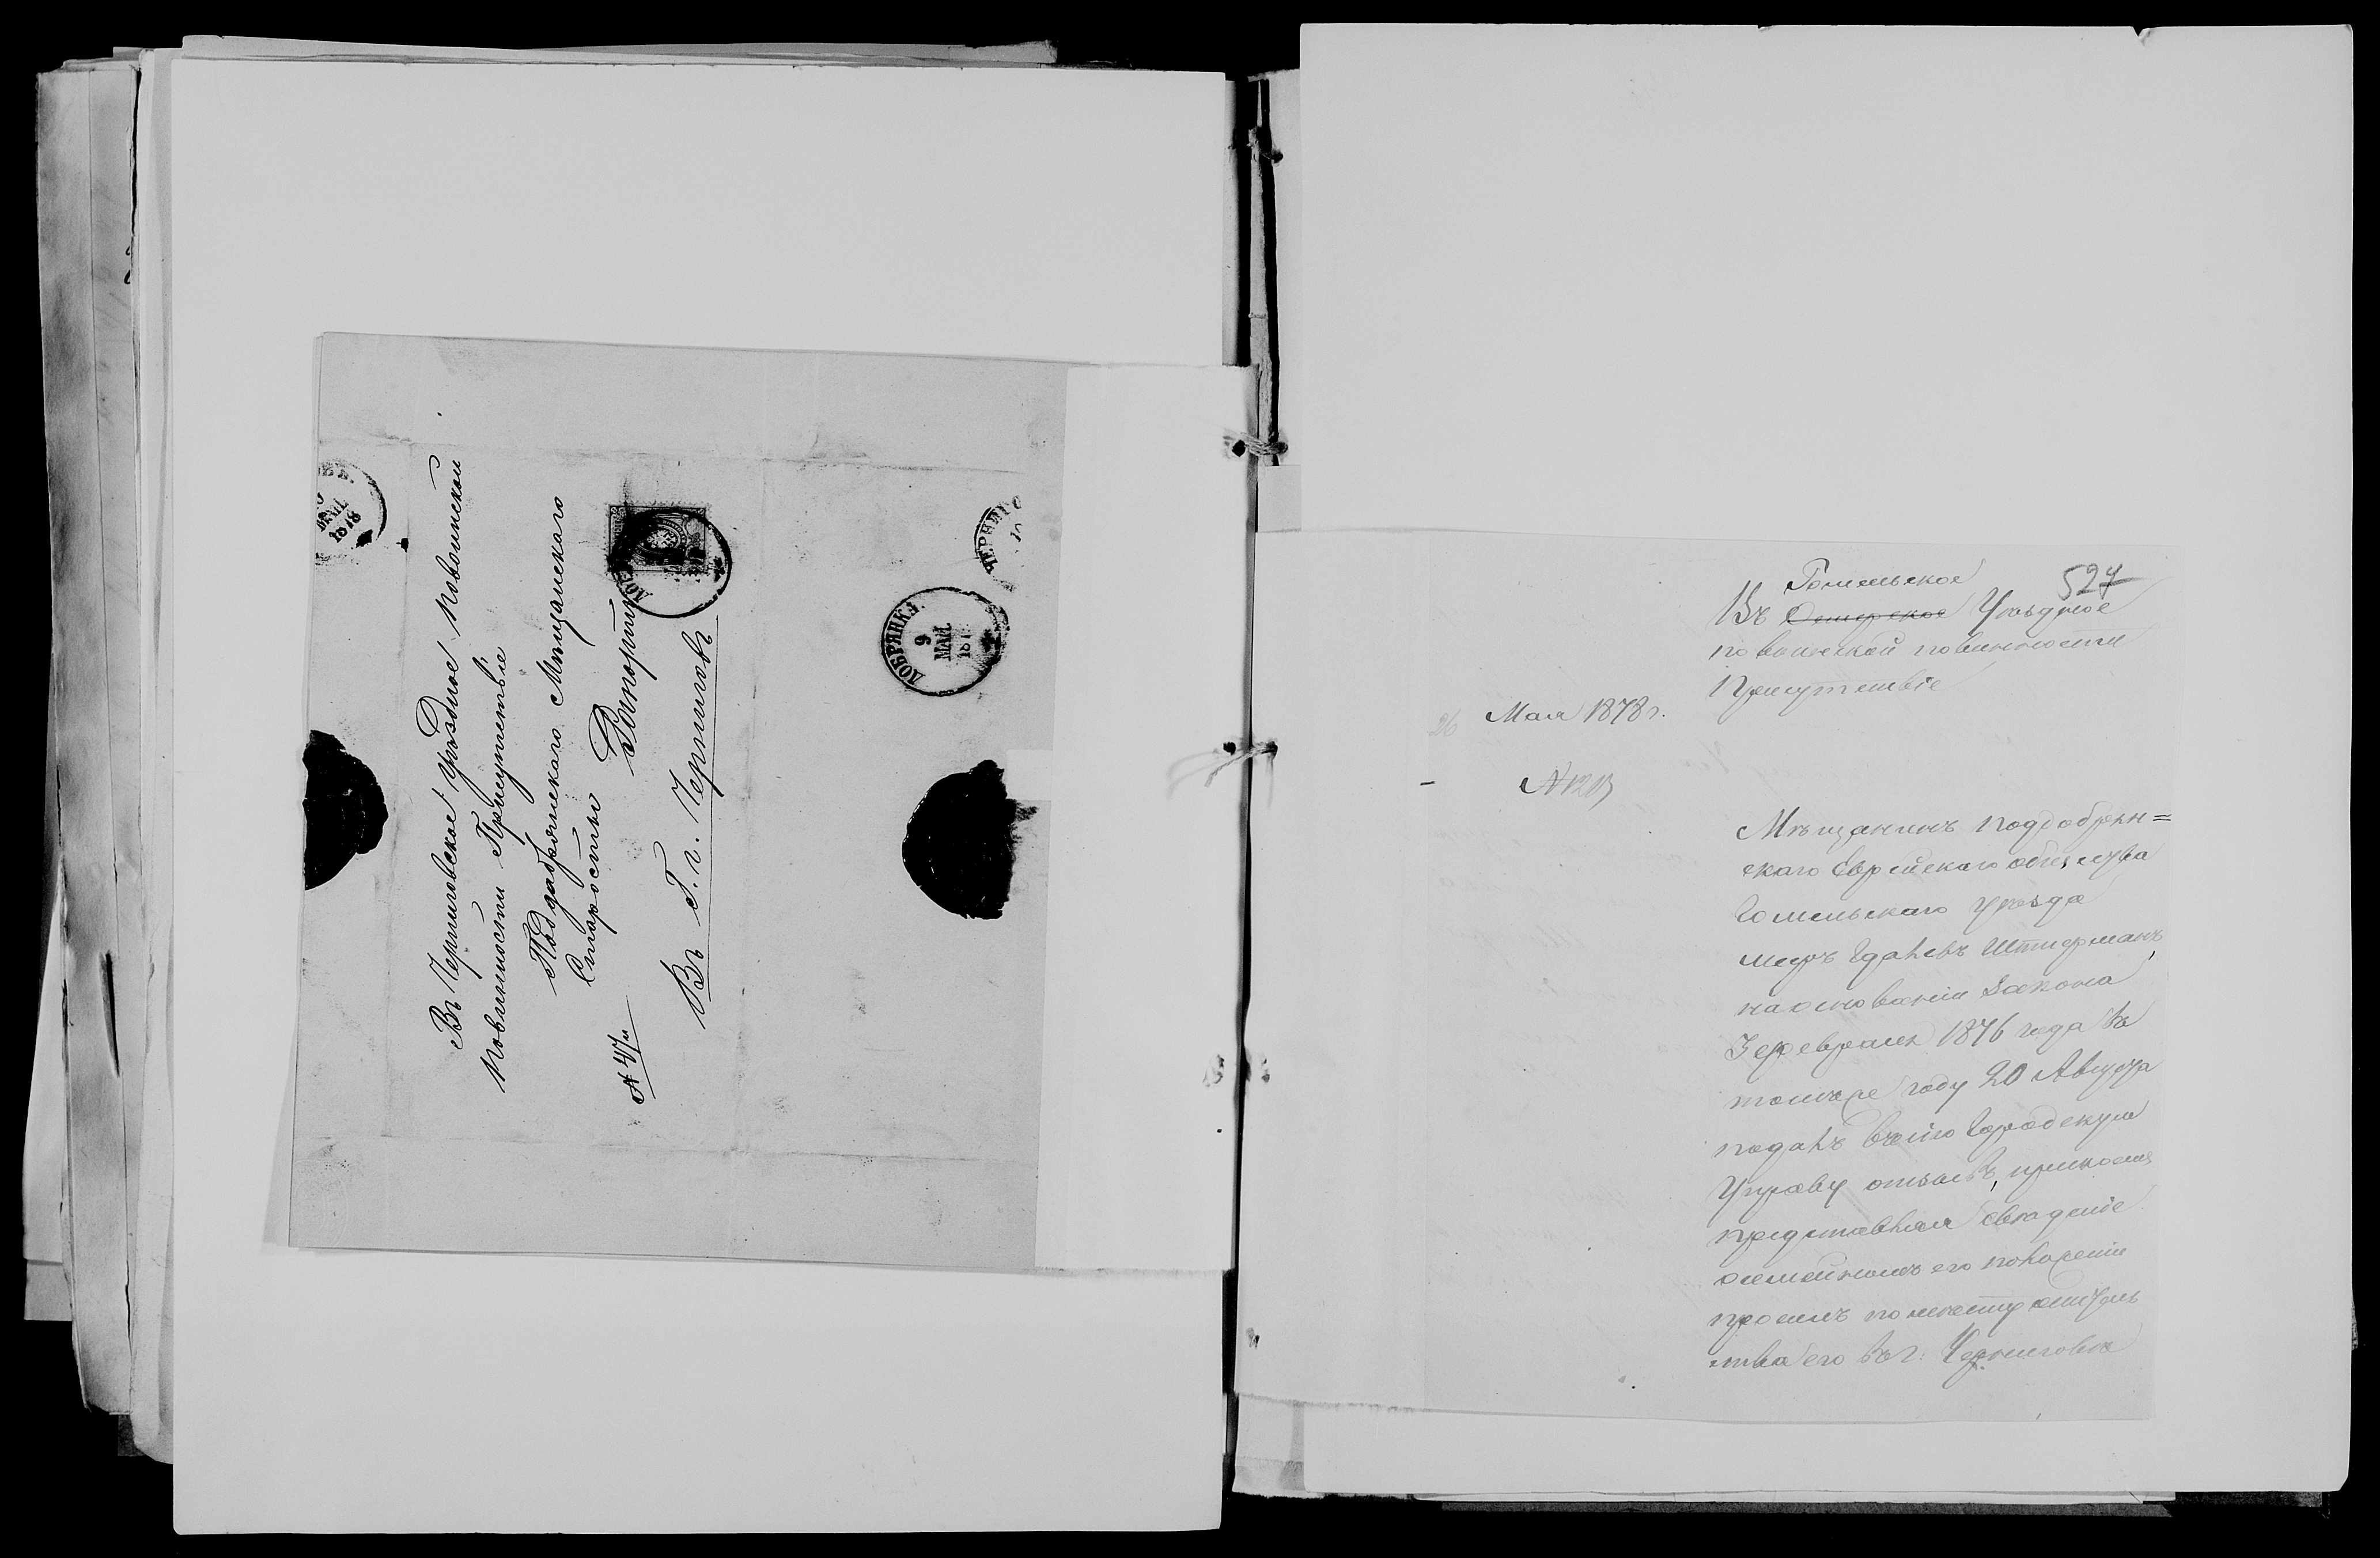 Въ Черниговское Уѣздное по воинской
повинности Присутствіе
Поддабрянскаго Мѣщанскаго
Старосты Рапортъ
№ 47й
Въ Г. г. Черниговъ
1878
ДОБРЯНКА
9
МАЯ
187
ЧЕРНИГО
10
527
Гомельское
Въ Остерское Уѣздное
по воинской повинности
Присутствіе
26 Мая 1878 г.
№
Мѣщанинъ Поддобрян=
скаго Еврейскаго общества
Гомельскаго уѣзда
Штиерманъ,
на основаніи закона
3 февраля 1876 года въ
томъ же году 20 Августа
подалъ въ сію Городскую
Управу отзывъ,
представляя
о семейномъ его положеніи
просилъ по мѣсту жительь
ства его въ г. Черниговѣ